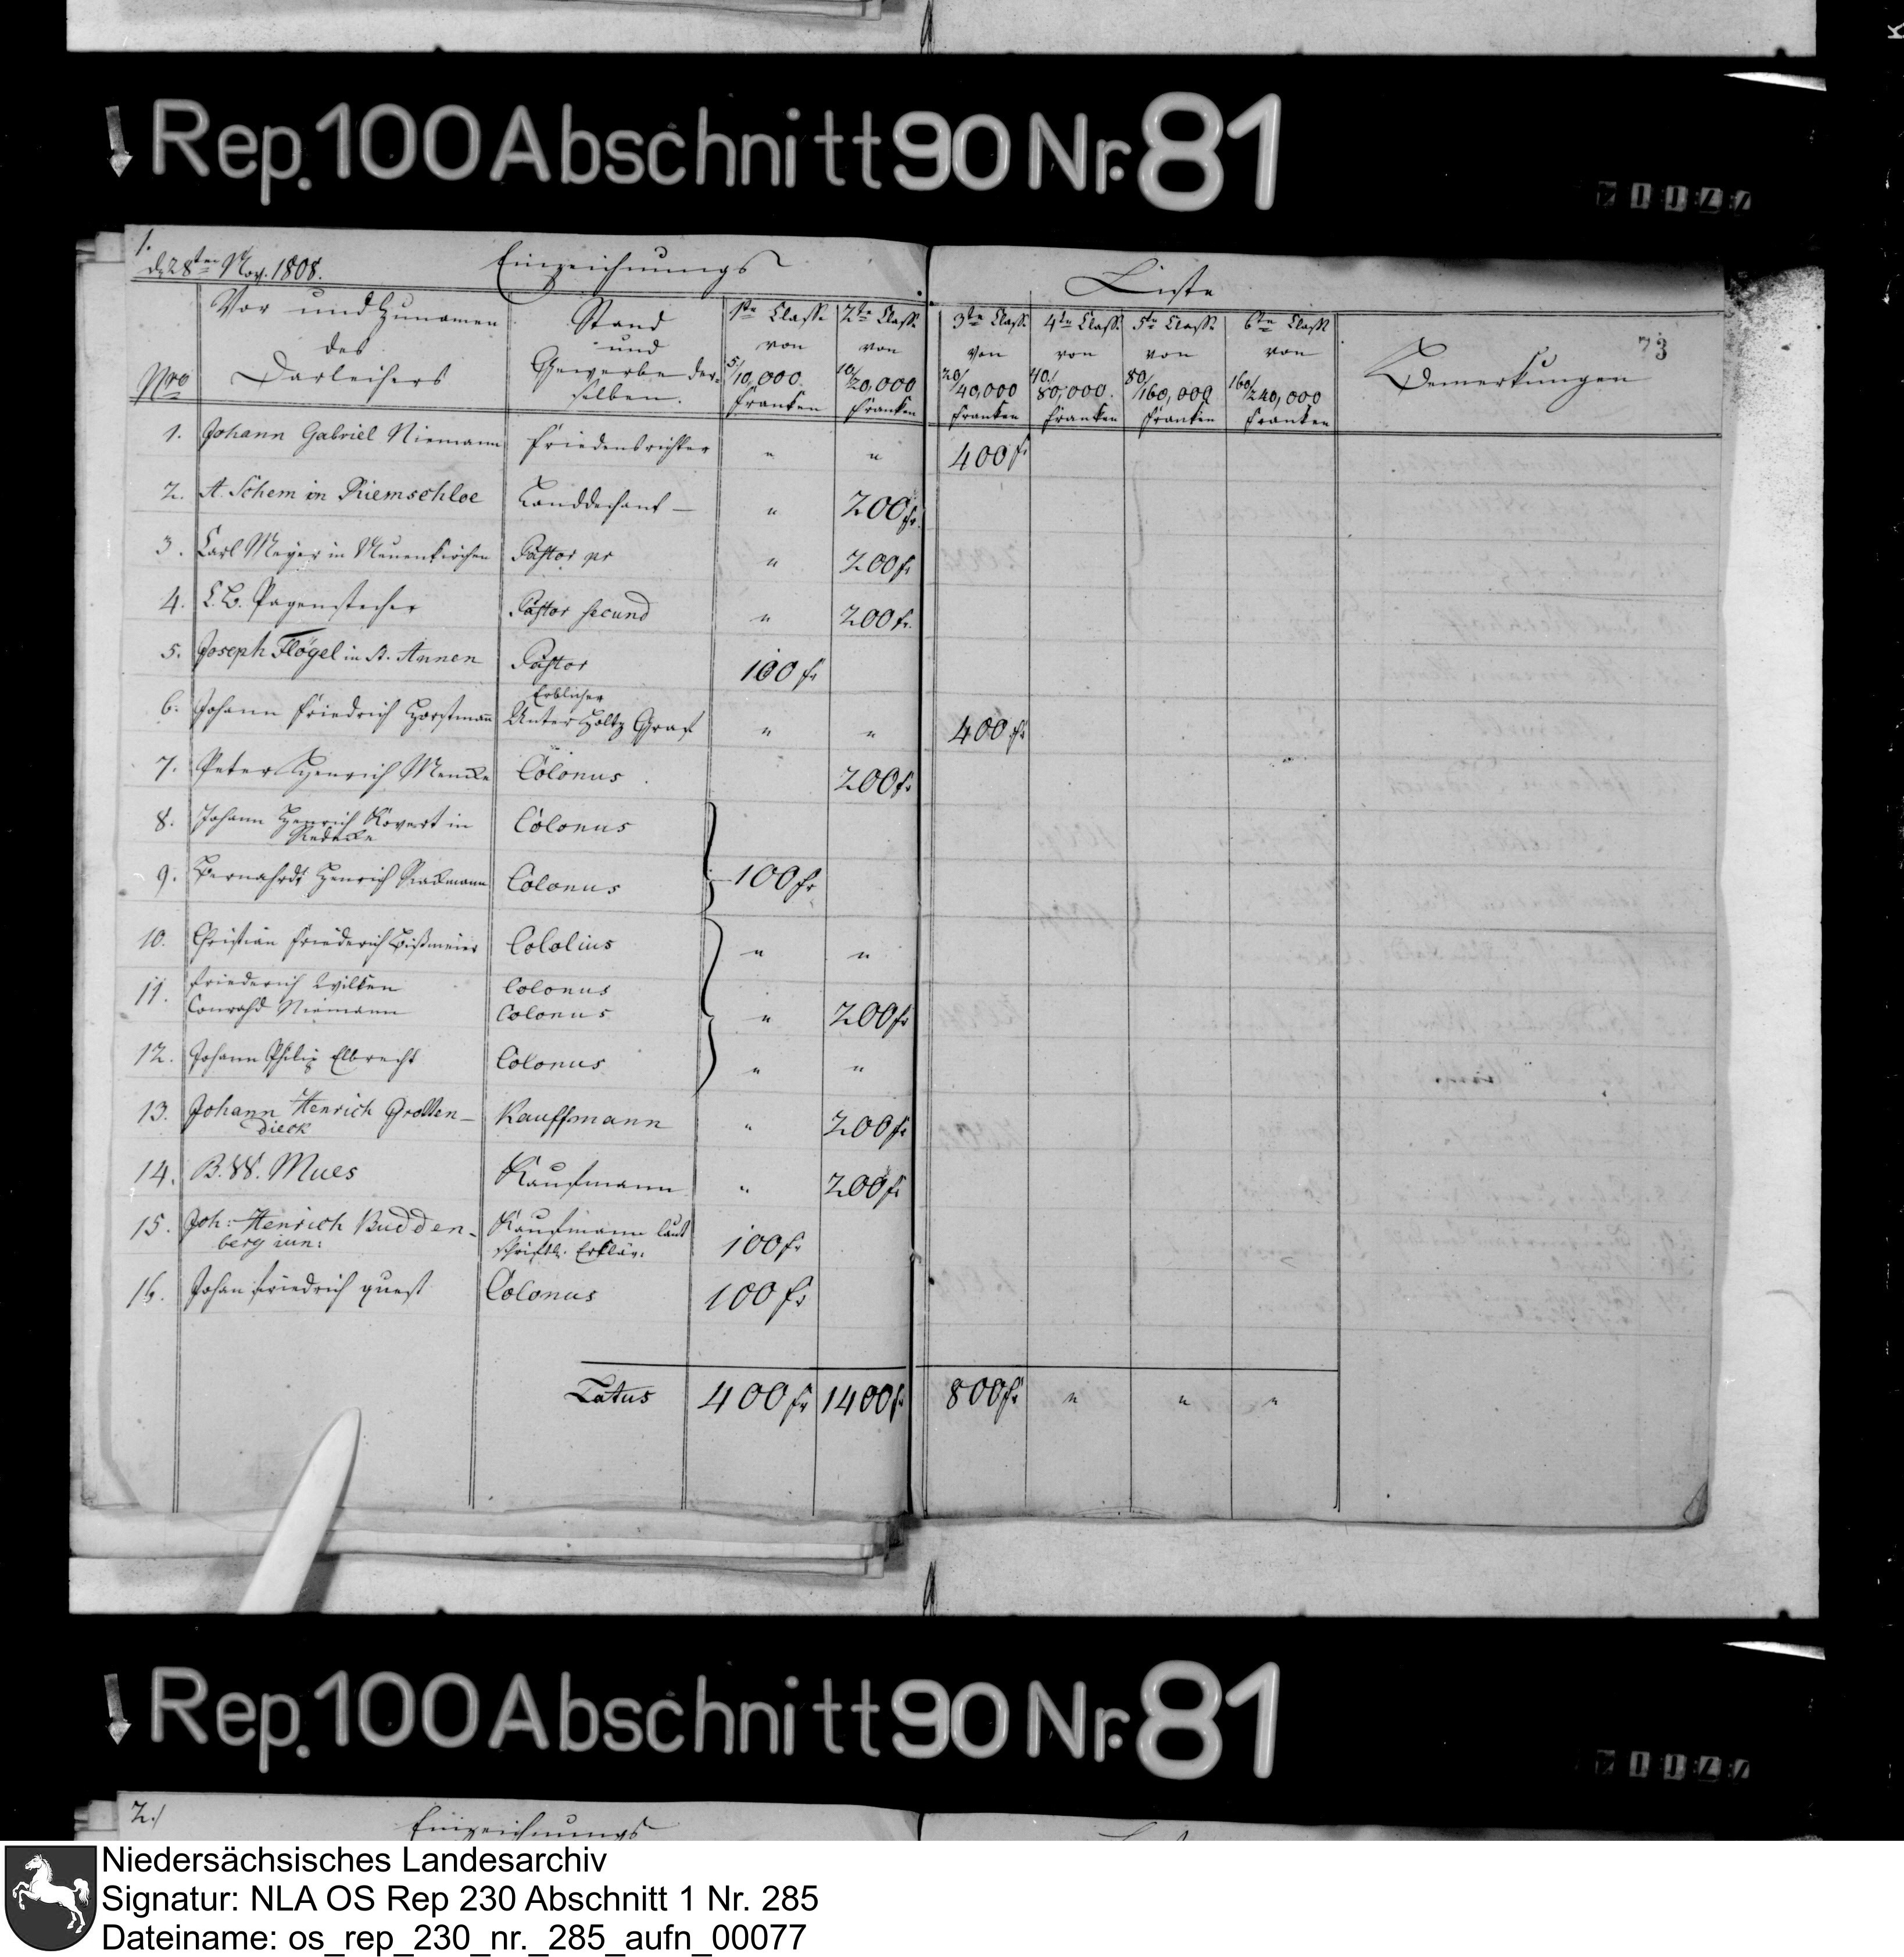 Rep. 100 Abschnitt 90 Nr. 81
1.
d 28ten Nov. 1808.
Einzeichnungs Liste
73
Nro
Vor und Zunamen des Darleihers
Stand und Gewerbe derselben.
1te Classe von 5/10,000. Franken
2te Classe von 10/20,000 Franken
3te Classe von 20/40,000 Franken
4te Classe von 40/80,000. Franken
5te Classe von 80/160,000 Franken
6te Classe von 160/240,000 Franken
Bemerkungen
1. Johann Gabriel Niemann Friedensrichter " " 400 fr
2. A. Schem in Riemschloe Landdechant — " 200 fr.
3. Carl Meyer in Neuenkirchen Pastor pr " 200 fr
4. L. B. Pagenstecher Pastor secund " 200 fr.
5. Joseph Flögel in St. Annen Pastor 100 fr
6. Johann Friedrich Horstmann Erblicher Unter Holtz Graf " " 400 fr
7. Peter Henrich Mencke Colonus 200 fr
8. Johann Henrich Kovert in Redecke Colonus
9. Bernahrdt Henrich Rackmann Colonus 100 fr
10. Christian Friederich Bißmeier Cololius " "
11. Friederich Wilken Colonus
Conrahd Niemann Colonus " 200 fr
12. Johann Philip Elbrecht Colonus " "
13. Johann Henrich Grotten-
dieck Kauffmann " 200 fr
14. B. W. Mues Kaufmann " 200 fr
15. Joh: Henrich Budden-
berg iun: Kaufmann laut schriftl. Erklär: 100 fr
16. Johan Friedrich quest Colonus 100 fr
Latus 400 fr 1400 fr 800 fr " " "
Rep. 100 Abschnitt 90 Nr. 81
2./
Einzeichnungs
Niedersächsisches Landesarchiv
Signatur: NLA OS Rep 230 Abschnitt 1 Nr. 285
Dateiname: os_rep_230_nr._285_aufn_00077